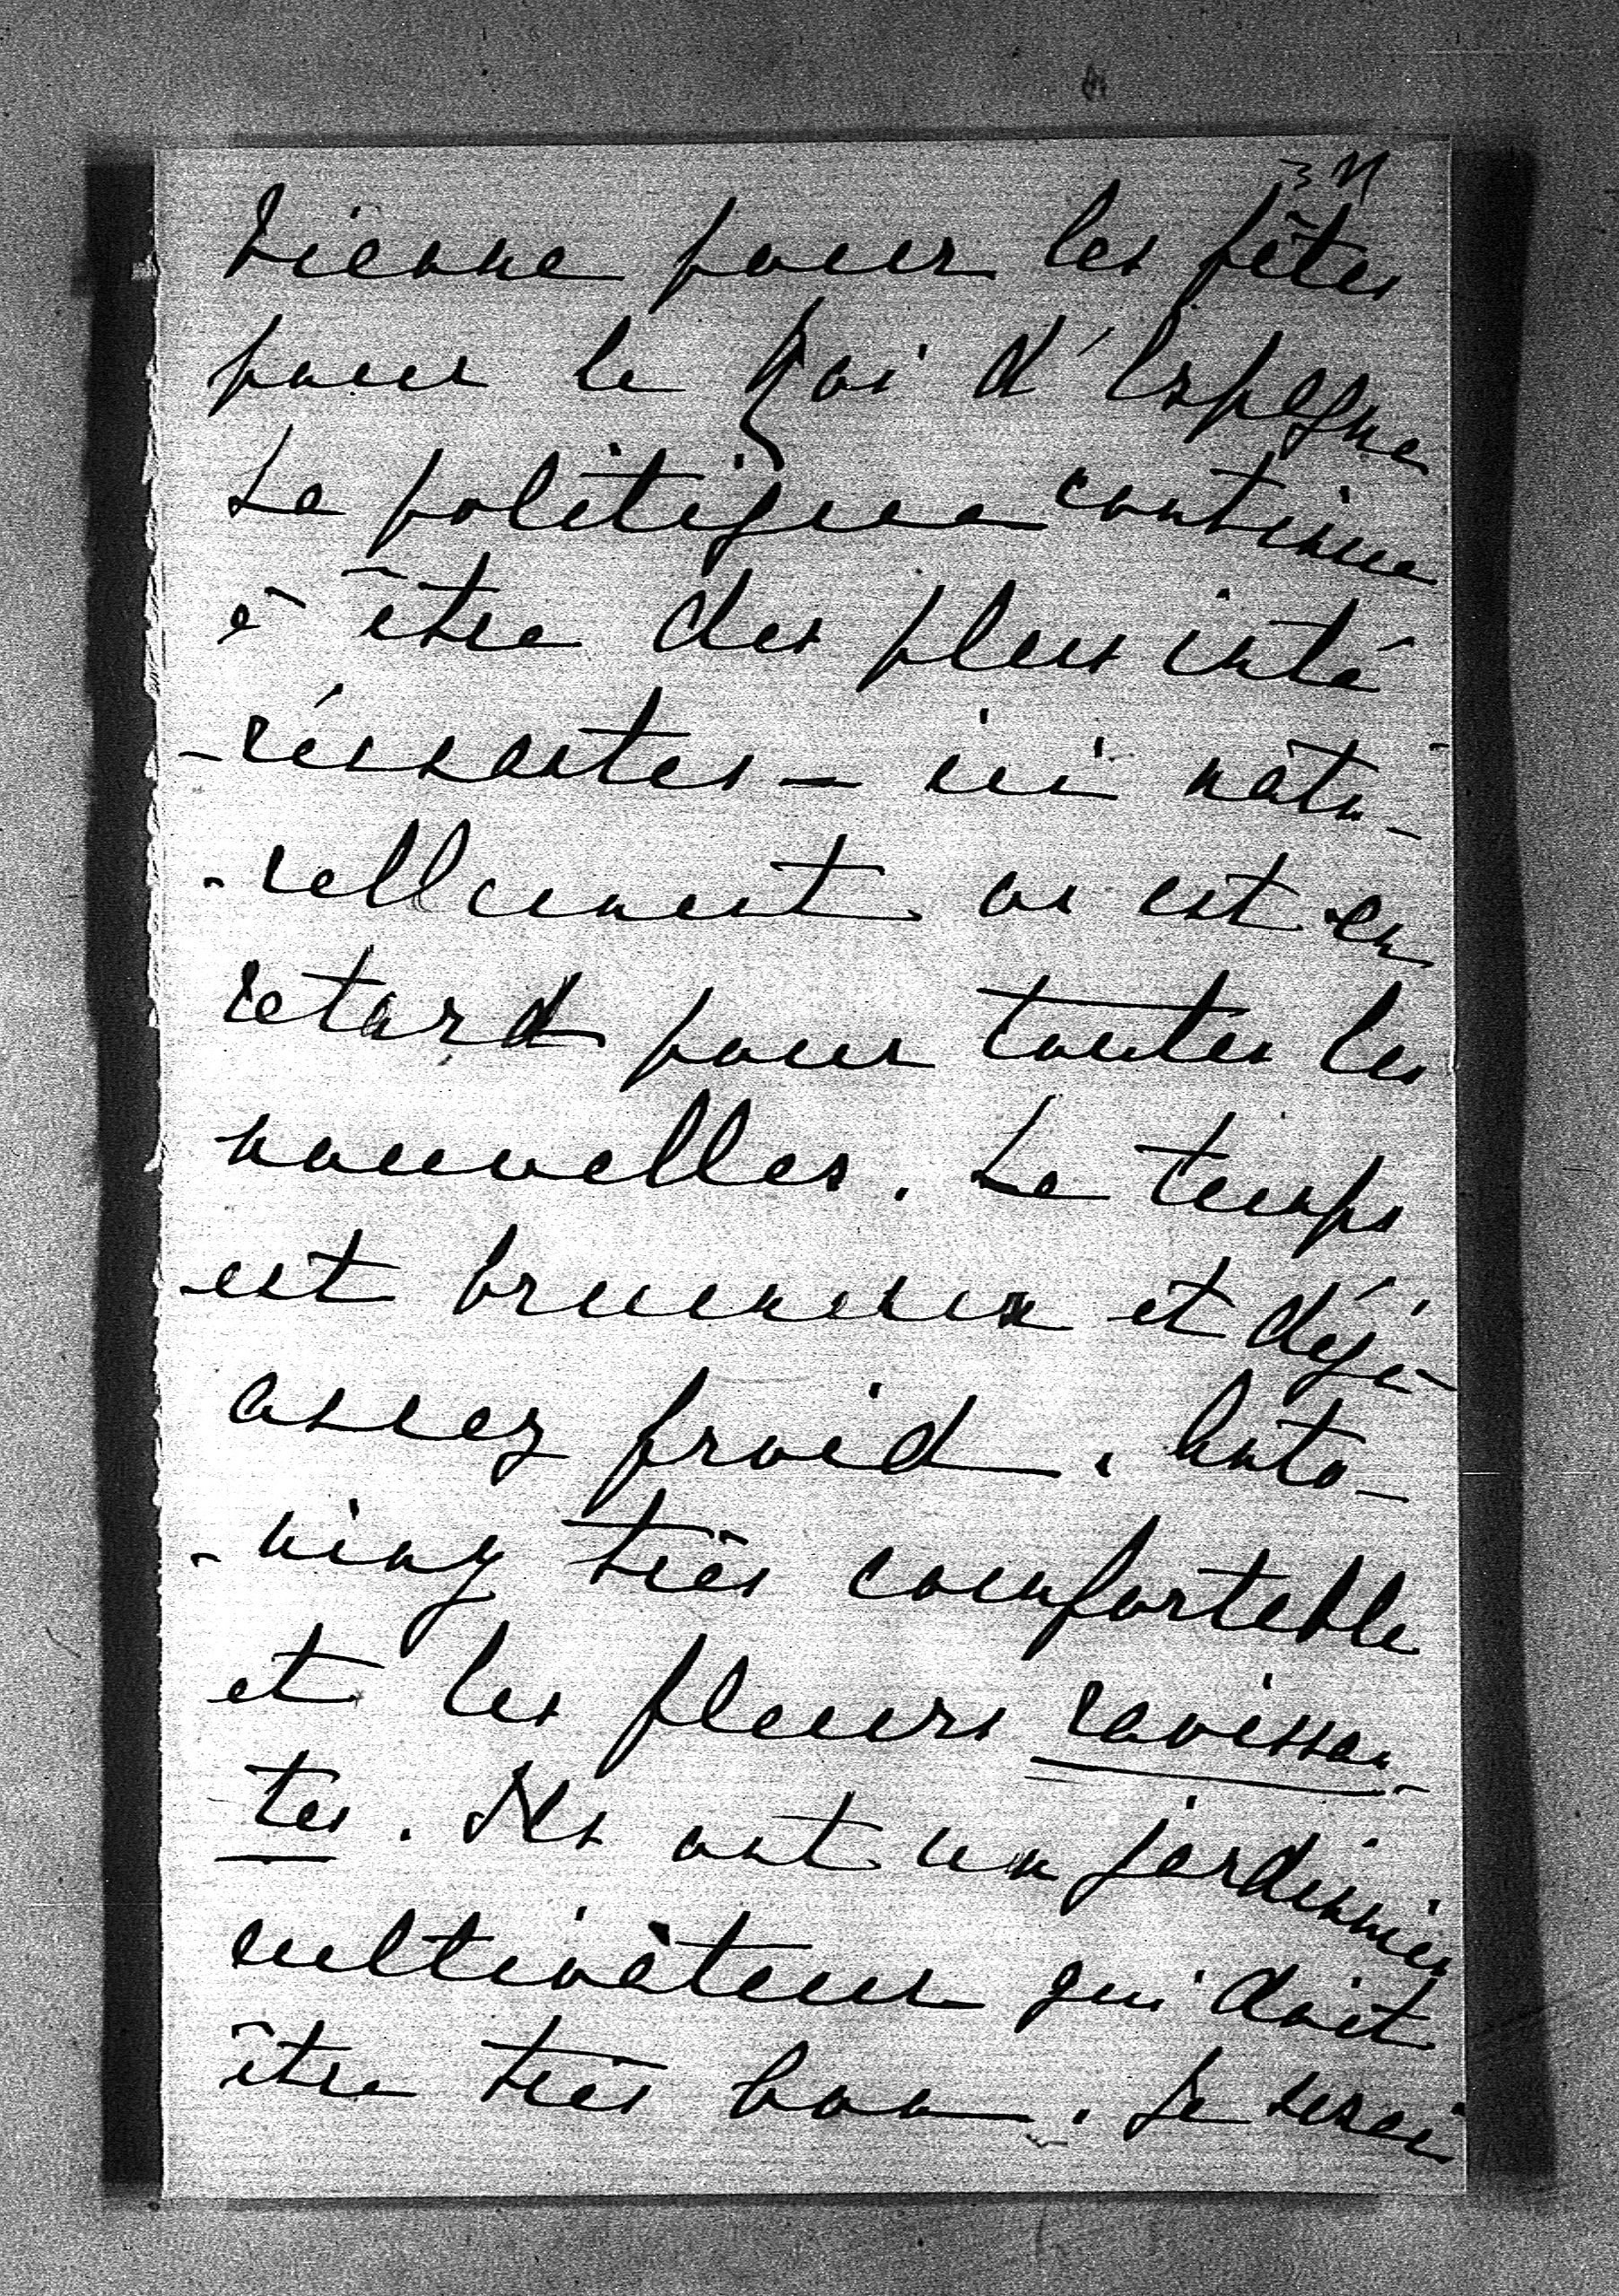 Vienne pour les fêtes
pour le Roi d'Espagne
La politique continue
à être des plus inté
-réssantes - ici natu-
-rellement on est en
retard pour toutes les
nouvelles. Le temps
est brumeux et déjà
assez froid. Anto-
-niny très comfortable
et les fleurs ravissan-
tes. Ils ont un jardinnier
cultivateur qui doit
être très bon. Je serai